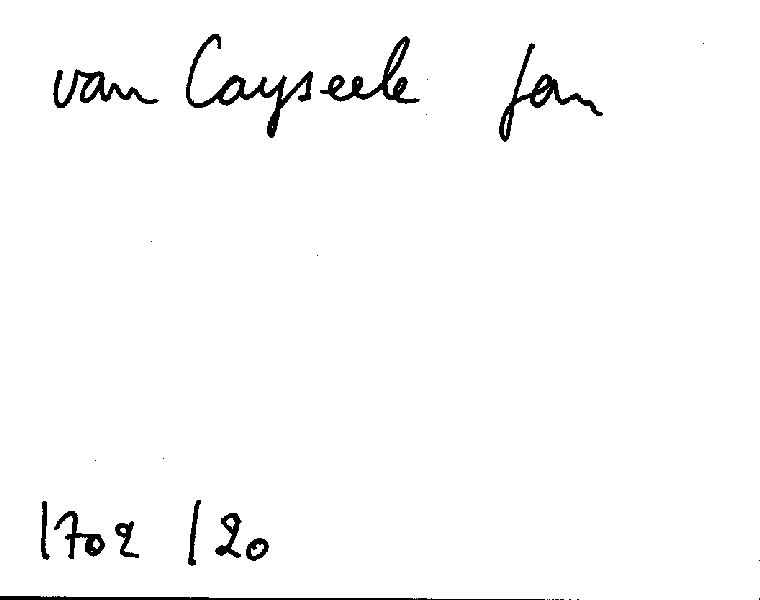 van Cayseele Jan
1702 / 20